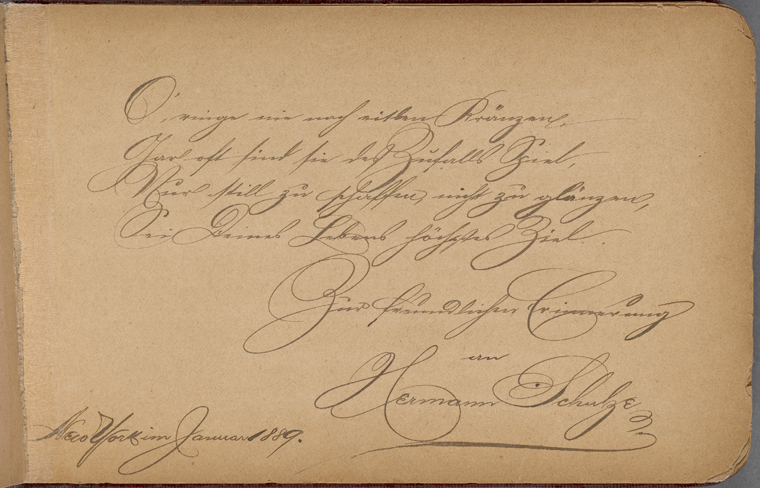 O, ringe nie nach eitlen Kränzen,
Gar oft sind sie des Zufalls Spiel,
Nur still zu schaffen, nicht zu glänzen,
Sei Deines Lebens höchstes Ziel.
Zur freundlichen Erinnerung
an
Hermann Schulze
New York im Januar 1889.